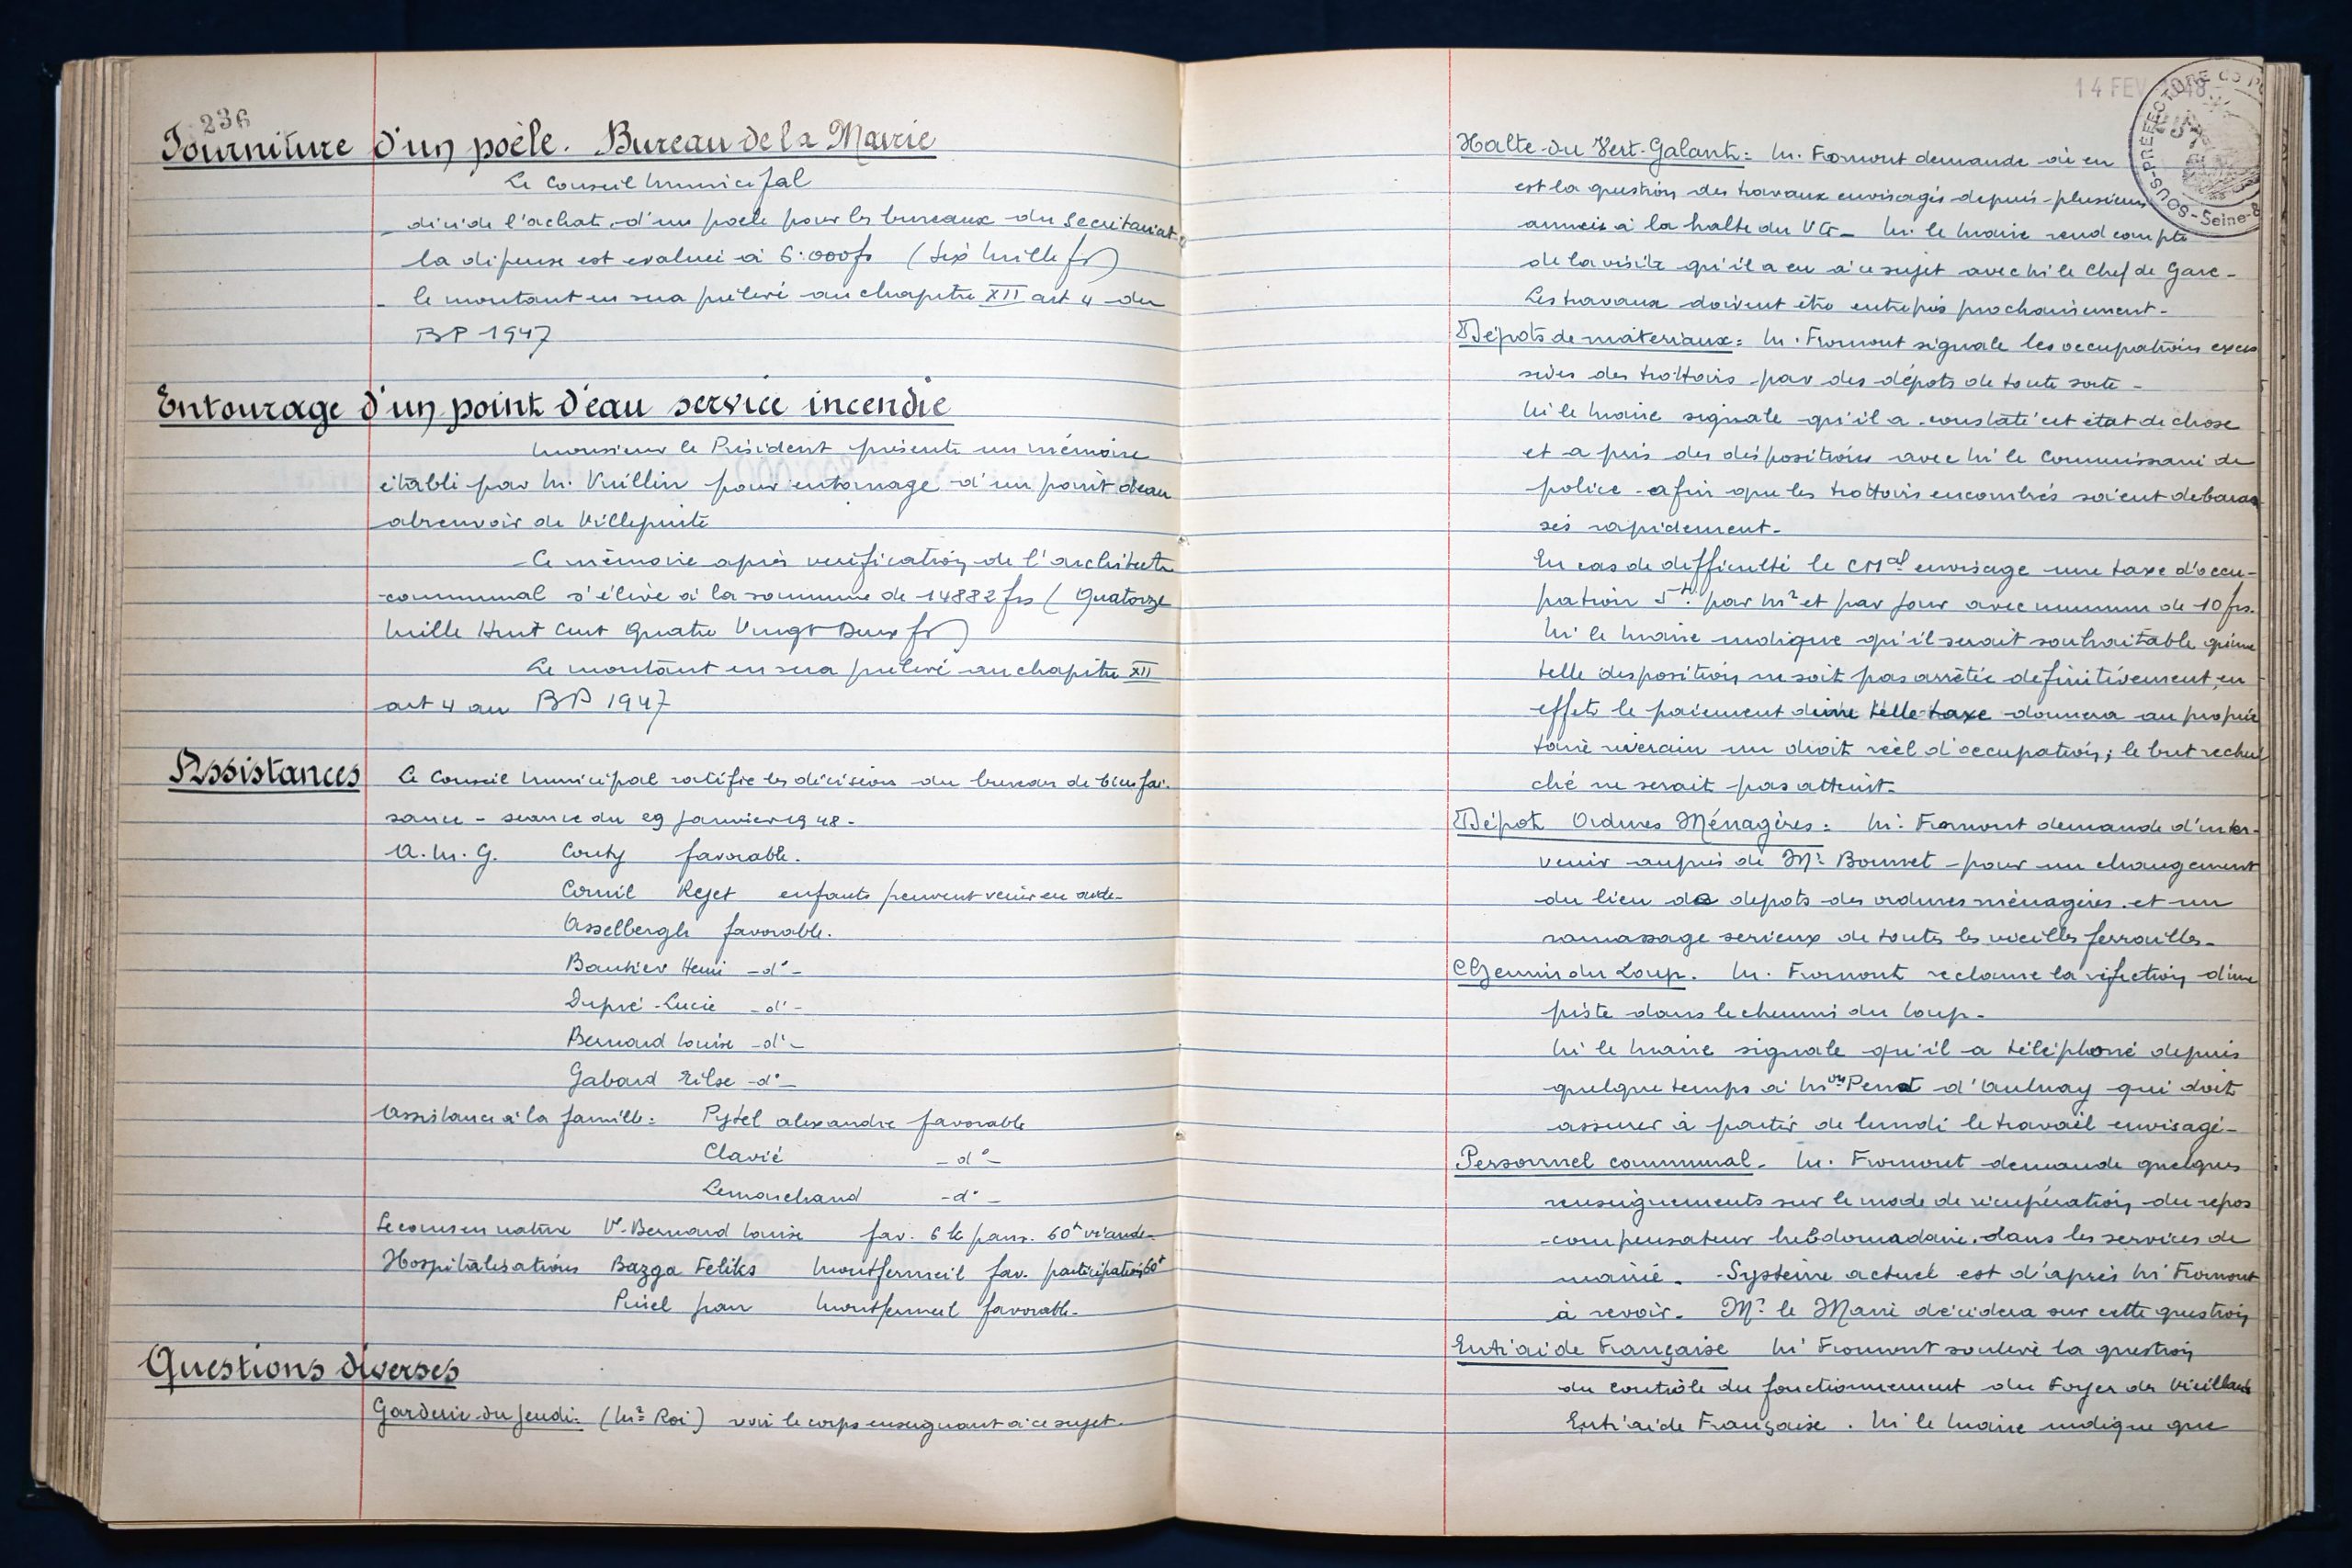 236
Fourniture d'un poêle. Bureau de la Mairie
Le Conseil Municipal
décide l'achat d'un poele pour les bureaux du Secretariat.
la dépense est evaluée à 6.000 frs (Six Mille frs)
- le montant en sera prélevé au chapitre XII art 4 du
BP 1947
Entourage d'un point d'eau service incendie
Monsieur le Président présente un mémoire
établi par M. Vuillin pour entourage d'un point d'eau
abreuvoir de Villepinte
Ce mémoire après vérification de l'architecte
communal s'élève à la somme de 14882 frs (Quatorze
Mille Huit Cent Quatre Vingt Deux frs)
Le montant en sera prélevé au chapitre XII
art 4 au BP 1947
Assistances
Le Conseil Municipal ratifie les décisions du bureau de bienfai-
sance - seance du 29 Janvier 1948.
A.M.G. Couty favorable.
Cornil Rejet enfants peuvent venir en aide-
Asselbergh favorable.
Bautier Henri -d°-
Dupré Lucie -d°-
Bernard Louise -d°-
Gabard -d°-
Assistance à la famille: Pytel alexandre favorable
Clavié -d°-
Lemarchand -d°-
Secours en nature Ve Bernard Louise fav. 6 k pain. 60f viande-
Hospitalisations Bazga Feliks Montfermeil fav. participation 60f
Montfermeil favorable.
Questions diverses
Garderie du Jeudi: (Mr Roi) voir le corps enseignant à ce sujet.
14 FEV 1948
SOUS-PRÉFECTURE de
Seine-&
Halte du Vert-Galant: M. Fromont demande où en
est la question des travaux envisagés depuis plusieurs
années à la halte du VG- M. le Maire rend compte
de la visite qu'il a eu à ce sujet avec Mr le Chef de Gare-
Les travaux doivent être entrepris prochainement-
Dépots de matériaux: M. Fromont signale les occupations exces
sives des trottoirs par des dépots de toute sorte-
Mr le Maire signale qu'il a constaté cet état de chose
et a pris des dispositions avec Mr le Commissaire de
police afin que les trottoirs encombrés soient debaras
sés rapidement-
En cas de difficulté le CMal envisage une taxe d'occu-
pation 5f. par m2 et par jour avec minimum de 10 frs.
Mr le Maire indique qu'il serait souhaitable qu'une
telle disposition ne soit pas arrêtée définitivement, en
effet le paiement d'une telle taxe donnera au proprié
taire riverain un droit réel d'occupation; le but recher
ché ne serait pas atteint.
Dépot Ordures Ménagères: Mr. Fromont demande d'inter-
venir auprès de Mr Bonnet pour un changement
du lieu de depots des ordures ménagères et un
ramassage serieux de toutes les vieilles ferrailles-
Chemin du Loup. M. Fromont reclame la réfection d'une
piste dans le chemin du Loup-
Mr le Maire signale qu'il a téléphoné depuis
quelque temps à d'Aulnay qui doit
assurer à partir de lundi le travail envisagé-
Personnel communal- M. Fromont demande quelques
renseignements sur le mode de récupération du repos
compensateur hebdomadaire dans les services de
mairie- Système actuel est d'après Mr Fromont
à revoir- Mr le Maire décidera sur cette question
Entr'aide Française Mr Fromont soulève la question
du contrôle du fonctionnement du Foyer des Vieillards
Entr'aide Française. Mr le Maire indique que